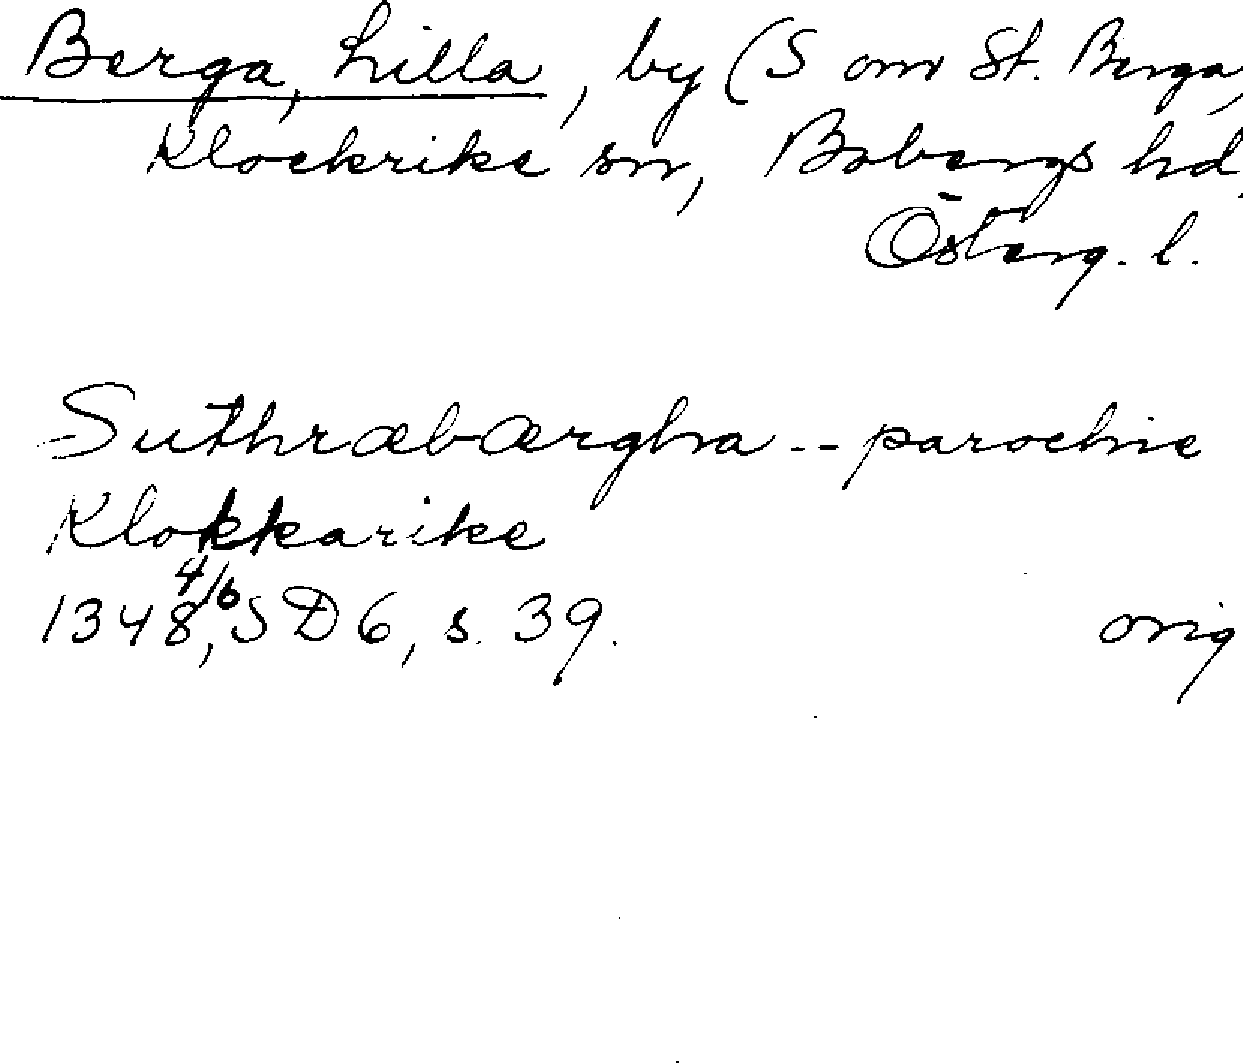 Berga, Lilla, by (S om St. Berga,
Klockrike sn, Bobergs hd,
Österg. l.
Suthræbærgha -- parochie
Klokkarike
1348 4/6, SD 6, s. 39. orig